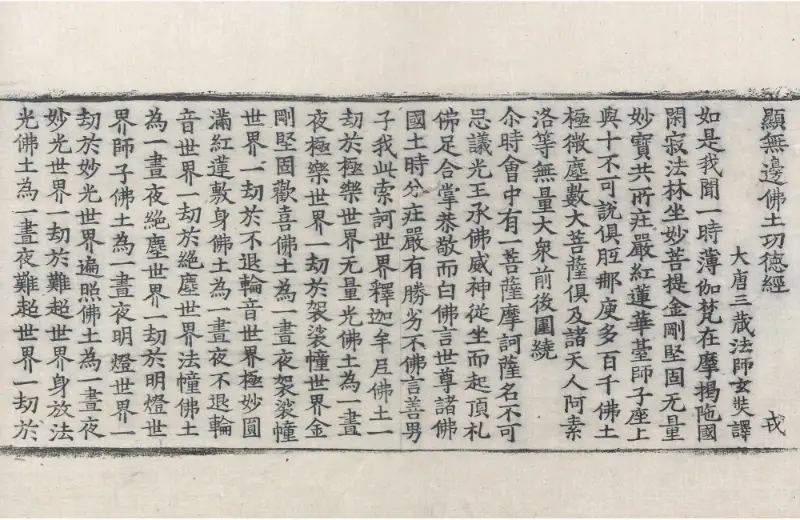 顯無邊佛土功德經
大唐三蔵法師玄奘譯 戎
如是我聞一時薄伽梵在摩揭陁國
閑寂法林坐妙菩提金剛堅固无量
妙寶共所莊嚴紅蓮華䑓師子座上
與十不可說俱胝那庾多百千佛土
極微塵數大菩薩俱及諸天人阿素
洛等無量大衆前後圍繞
尒時會中有一菩薩摩訶薩名不可
思議光王承佛威神從坐而起頂礼
佛足合掌恭敬而白佛言世尊諸佛
國土時分莊嚴有勝劣不佛言善男
子我此索訶世界釋迦牟尼佛土一
劫於極樂世界无量光佛土為一晝
夜極樂世界一劫於袈裟幢世界金
剛堅固歡喜佛土為一晝夜袈裟幢
世界一劫於不退輪音世界極妙圓
滿紅蓮敷身佛土為一晝夜不退輪
音世界一劫於絕塵世界法幢佛土
為一晝夜絕塵世界一劫於明燈世
界師子佛土為一晝夜明燈世界一
劫於妙光世界遍照佛土為一晝夜
妙光世界一劫於難超世界身放法
光佛土為一晝夜難超世界一劫於